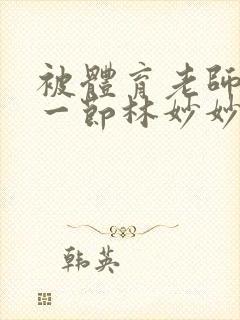 被體育老師
一節林妙妙
韩英